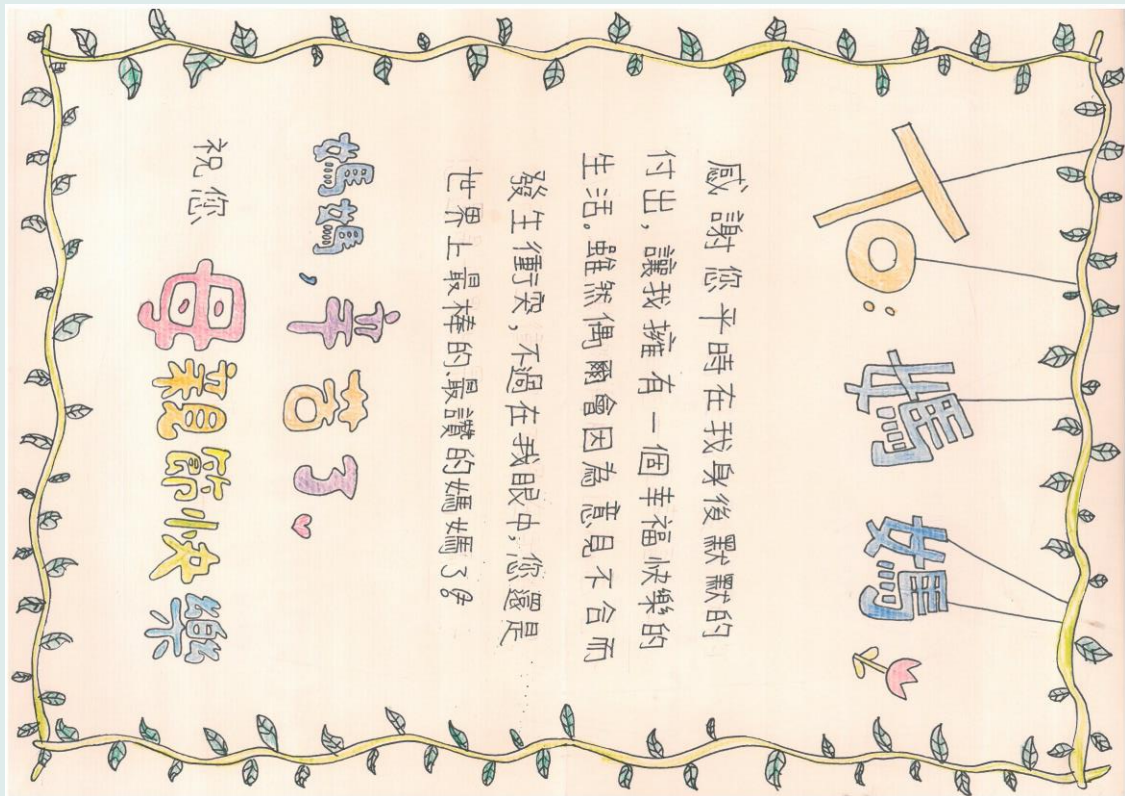 To：媽媽
感謝您平時在我身後默默的
付出，讓我擁有一個幸福快樂的
生活。雖然偶爾會因為意見不合而
發生衝突，不過在我眼中，您還是
世界上最棒的、最讚的媽媽了
媽媽，辛苦了♡
祝您 母親節快樂